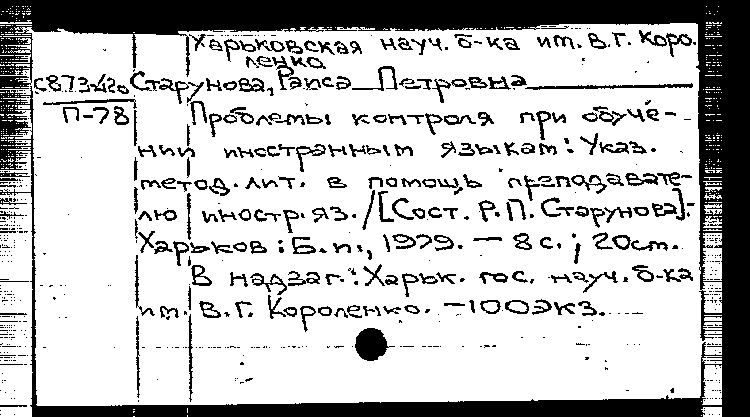 Харьковская науч. б-ка им. В.Г. Коро-
ленко
С873-420 Старунова, Раиса Петровна
П-78 Проблемы контроля при обуче-
нии иностранным языкам: Указ.
метод. лит. в помощь преподавате-
лю иностр. яз. / [Сост. Р.П. Старунова].-
Харьков: Б.и., 1979. - 8 с.; 20 см.
В надзаг.: Харьк. гос. науч. б-ка
им. В.Г. Короленко. - 100 экз.